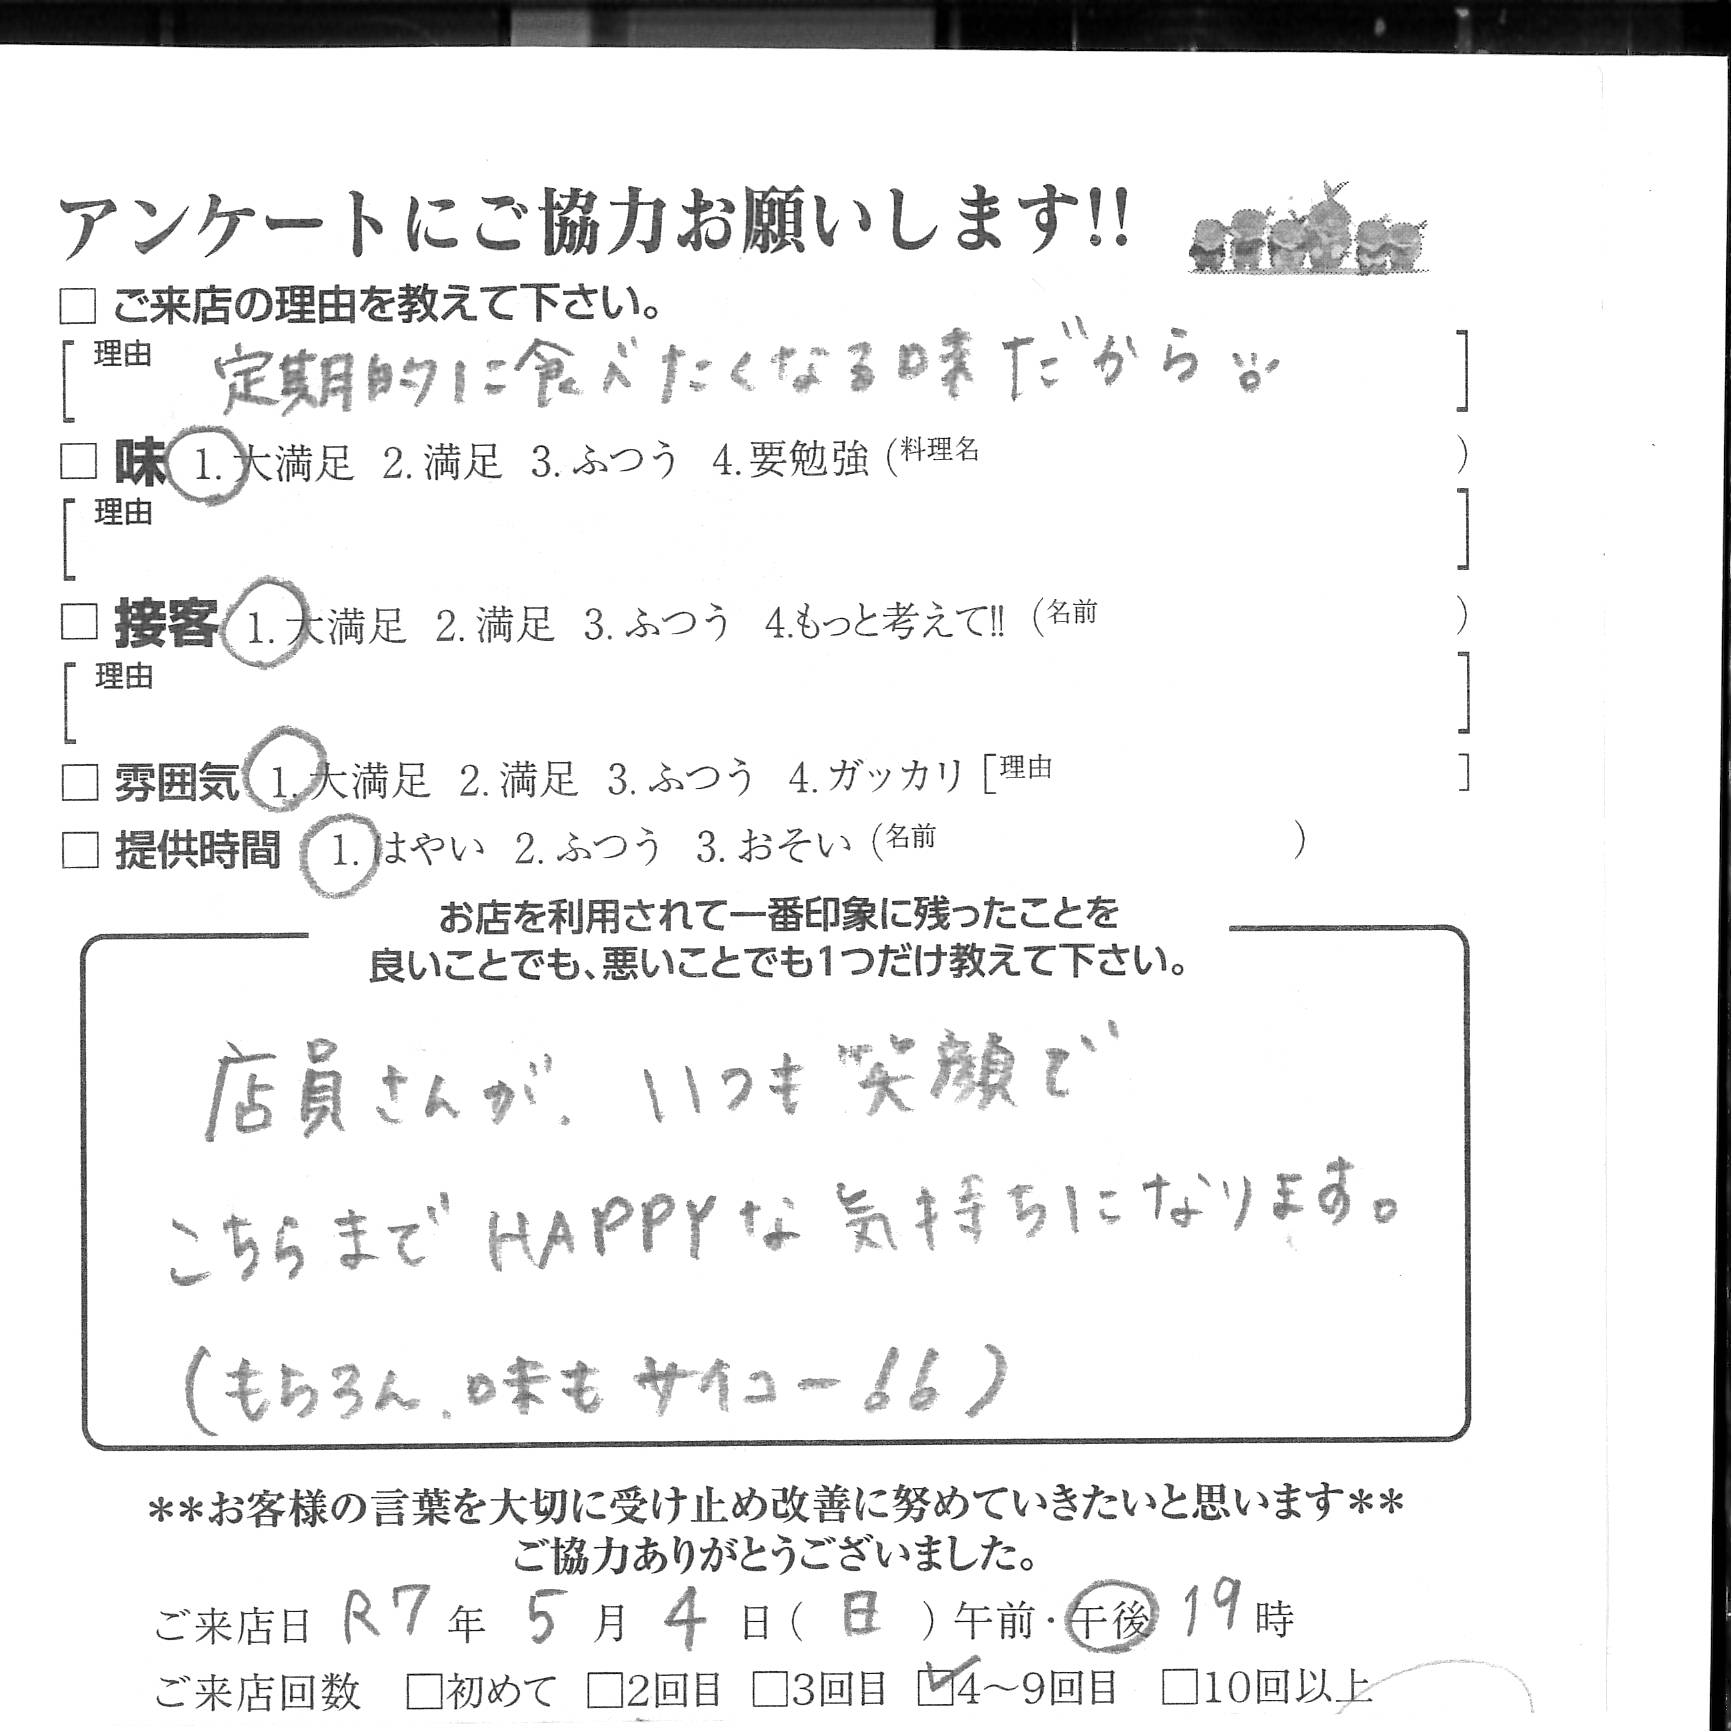 アンケートにご協力お願いします!!
□ ご来店の理由を教えて下さい。
[ 理由 定期的に食べたくなる味だから ]
□ 味 1.大満足 2.満足 3.ふつう 4.要勉強(料理名 )
[ 理由 ]
□ 接客 1.大満足 2.満足 3.ふつう 4.もっと考えて!!(名前 )
[ 理由 ]
□ 雰囲気 1.大満足 2.満足 3.ふつう 4.ガッカリ[理由 ]
□ 提供時間 1.はやい 2.ふつう 3.おそい(名前 )
お店を利用されて一番印象に残ったことを
良いことでも、悪いことでも1つだけ教えて下さい。
店員さんが、いつも笑顔で
こちらまでHAPPYな気持ちになります。
(もちろん、味もサイコー!!)
**お客様の言葉を大切に受け止め改善に努めていきたいと思います**
ご協力ありがとうございました。
ご来店日 R7年 5月 4日(日)午前・午後 19時
ご来店回数 □初めて □2回目 □3回目 ☑4〜9回目 □10回以上